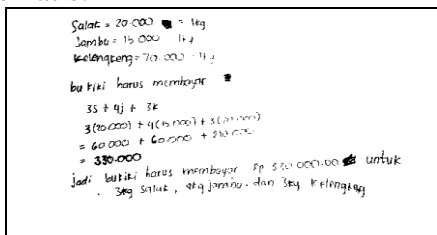 Salak = 20.000 = 1kg
Jambu = 15.000 1kg
Kelengkeng = 70.000 = 1kg
bu kiki harus membayar
3s + 4j + 3k
3(20.000) + 4(15.000) + 3(70.000)
= 60.000 + 60.000 + 210.000
= 330.000
jadi bu kiki harus membayar Rp 330.000.00 untuk
3kg salak, 4kg jambu. dan 3kg kelengkeng